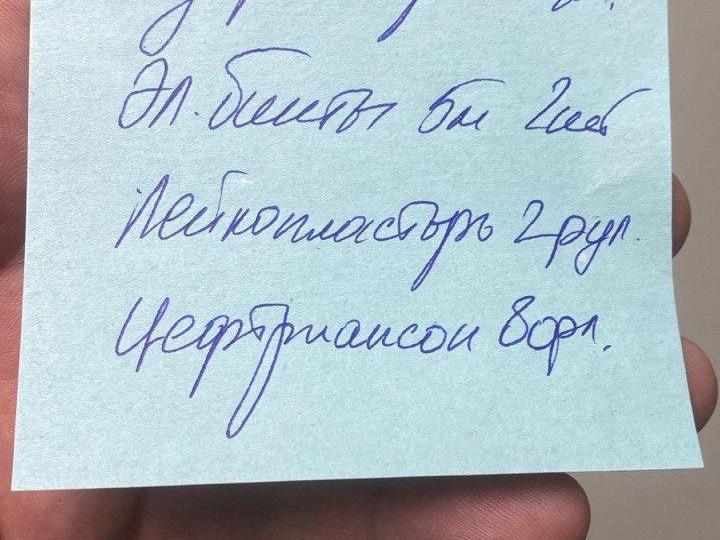 Эл. бинты 5м 2шт
Лейкопластырь 2 рул.
Цефтриаксон 8 фл.